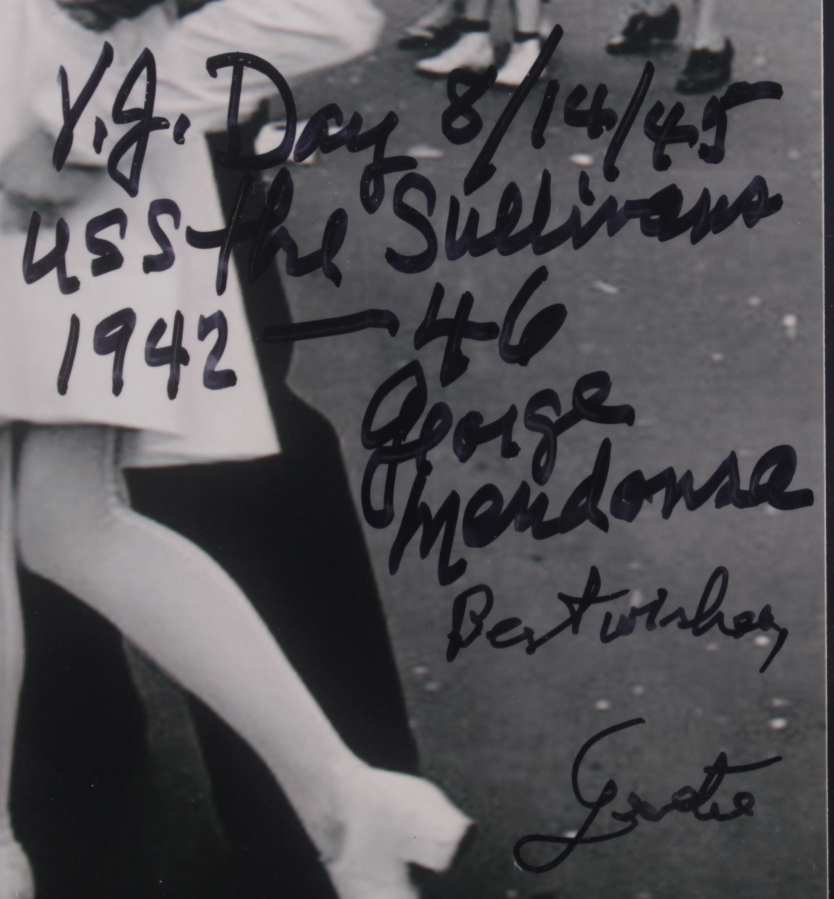 V.J. Day 8/14/45
USS-The Sullivans
1942 — 46
George
Mendonsa
Best wishes,